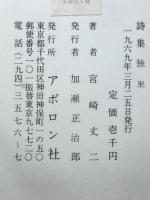 アポロン社
詩集 独坐
一九六九年三月二五日発行
定価壱千円
著者 宮崎丈二
発行者 加瀬正治郎
発行所 アポロン社
東京都千代田区神田神保町一の五〇
郵便番号一〇一振替東京九七七二〇
電話(二九四)三五七六~七